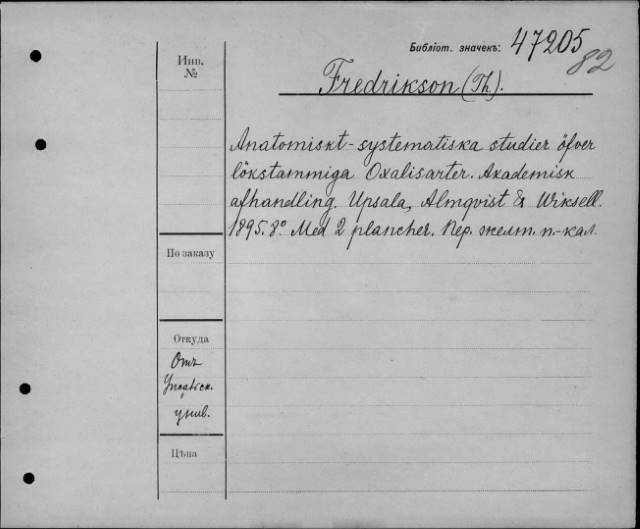 Библіот. значекъ: 47205
82
Инв.
№
Fredrikson (Th.).
Anatomiskt-systematiska studier öfver
lökstammiga Oxalisarter. Akademisk
afhandling. Upsala, Almqvist & Wiksell.
1895. 8º. Med 2 plancher. Пер. желт. п.-кал.
По заказу
Откуда
Отъ
Упсальск.
унив.
Цѣна